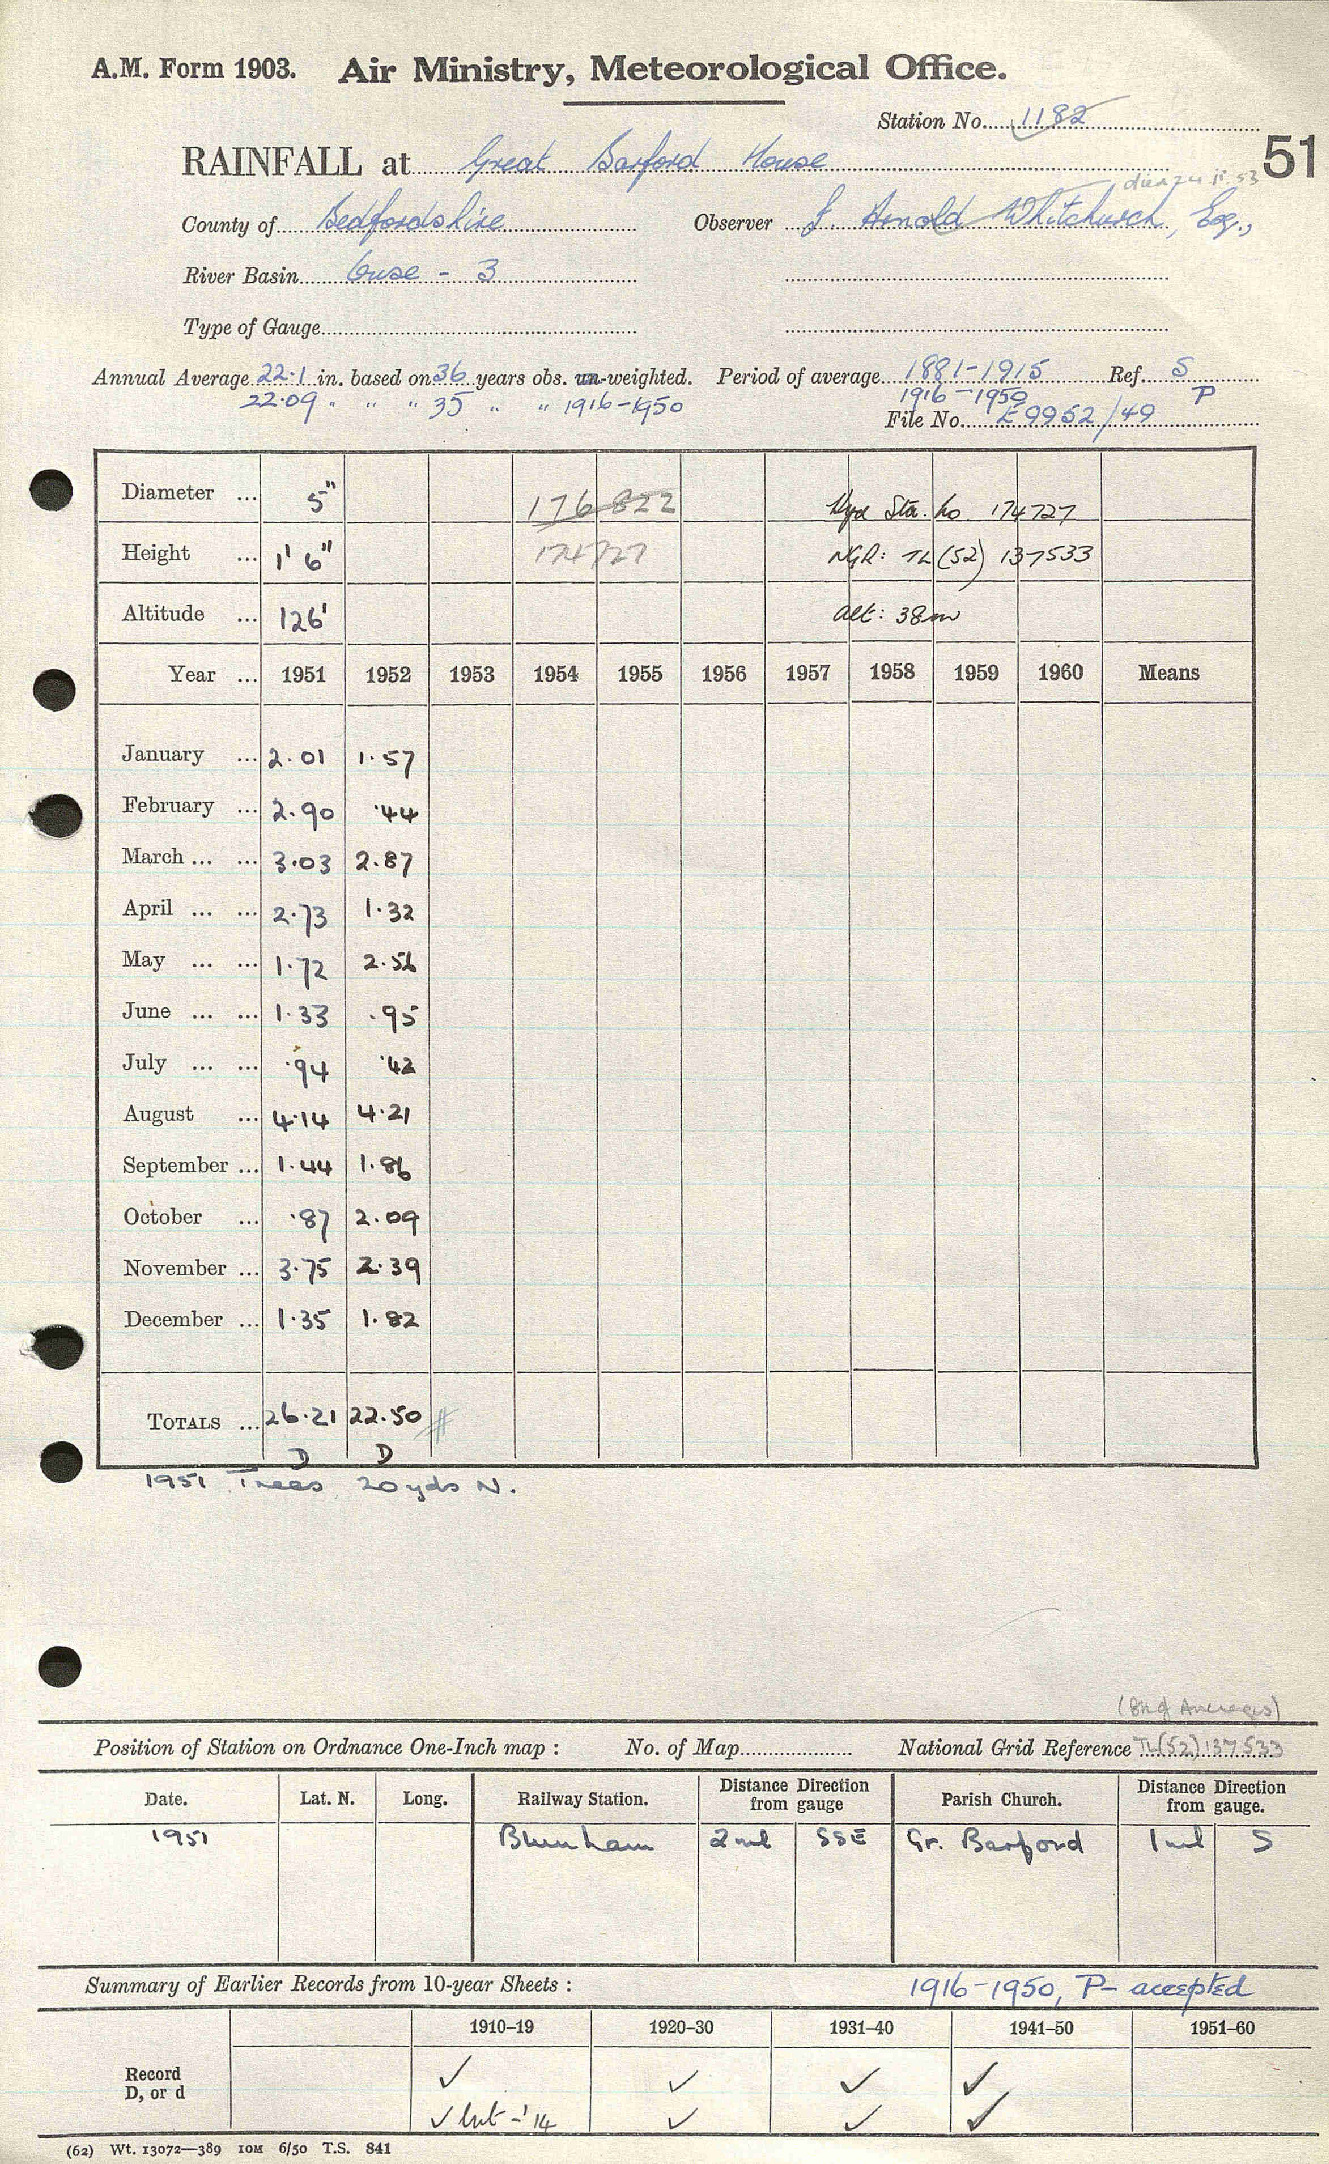 A.M. Form 1903. Air Ministry, Meteorological Office.
Station No. 1182
51
RAINFALL at Great Barford House
died 24 11 53
County of Bedfordshire Observer J. Arnold Whitchurch, Esq.,
River Basin Ouse - 3
Type of Gauge
Annual Average 22.1 in. based on 36 years obs. un-weighted. Period of average 1881-1915 Ref. S
22.09 " " " 35 " " 1916-1950 1916-1950 P
File No. E9952/49
Diameter ... 5" 176822 Hyd Sta. No 174727
Height ... 1' 6" 174727 NGR: TL(52) 137533
Altitude ... 126' alt: 38m
Year ... 1951 1952 1953 1954 1955 1956 1957 1958 1959 1960 Means
January ... 2.01 1.57
February ... 2.90 .44
March ... ... 3.03 2.87
April ... ... 2.73 1.32
May ... ... 1.72 2.56
June ... ... 1.33 .95
July ... ... .94 .42
August ... 4.14 4.21
September ... 1.44 1.86
October ... .87 2.09
November ... 3.75 2.39
December ... 1.35 1.82
TOTALS ... 26.21 22.50 #
D D
1951 Trees 20 yds N.
(8 Averages)
Position of Station on Ordnance One-Inch map : No. of Map National Grid Reference TL(52)137533
Date. Lat. N. Long. Railway Station. Distance Direction from gauge Parish Church. Distance Direction from gauge.
1951 Blunham 2 ml SSE Gr. Barford 1 ml S
Summary of Earlier Records from 10-year Sheets : 1916-1950, P- accepted
1910–19 1920–30 1931–40 1941–50 1951–60
Record ✓ ✓ ✓ ✓
D, or d ✓ but -'14 ✓ ✓ ✓
(62) Wt. 13072—389 10M 6/50 T.S. 841